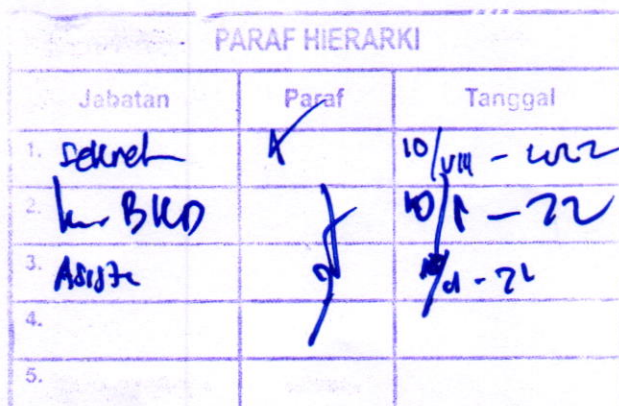 PARAF HIERARKI
Jabatan Paraf Tanggal
1. Sekret 10/VIII - 2022
2. BKD 10/ - 22
3. - 22
4.
5.